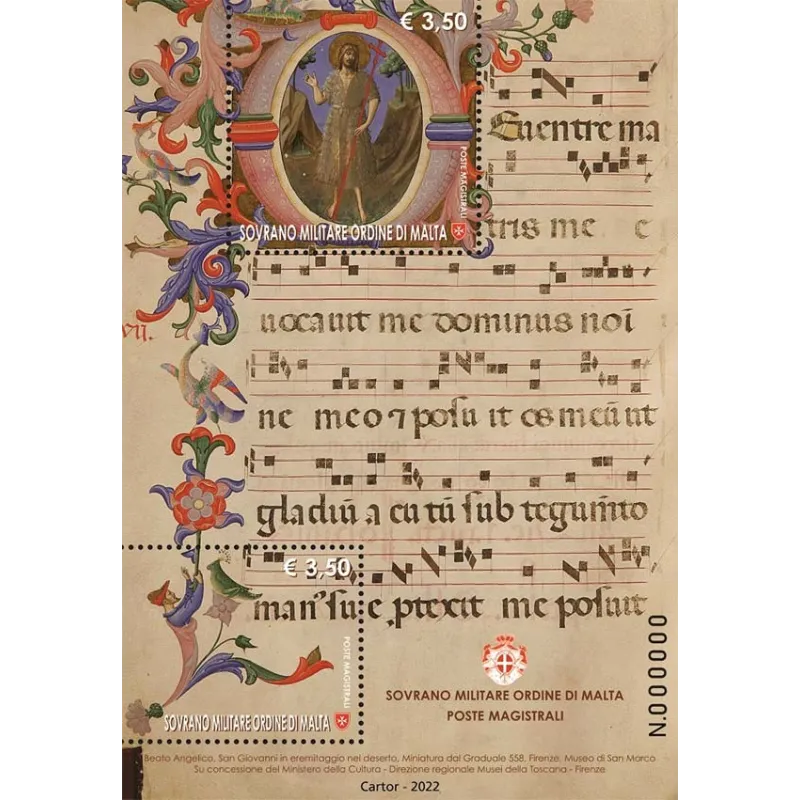 € 3,50
POSTE MAGISTRALI
SOVRANO MILITARE ORDINE DI MALTA
Euentre ma
tris me e
uocauit me dominus noi
vii.
ne meo ⁊ posu it os meū ut
gladiū a cu tū sub tegumīto
€ 3,50
man' su e ptexit me posuit
POSTE MAGISTRALI
SOVRANO MILITARE ORDINE DI MALTA
SOVRANO MILITARE ORDINE DI MALTA
POSTE MAGISTRALI
N.000000
Beato Angelico, San Giovanni in eremitaggio nel deserto, Miniatura dal Graduale 558, Firenze, Museo di San Marco
Su concessione del Ministero della Cultura - Direzione regionale Musei della Toscana - Firenze
Cartor - 2022